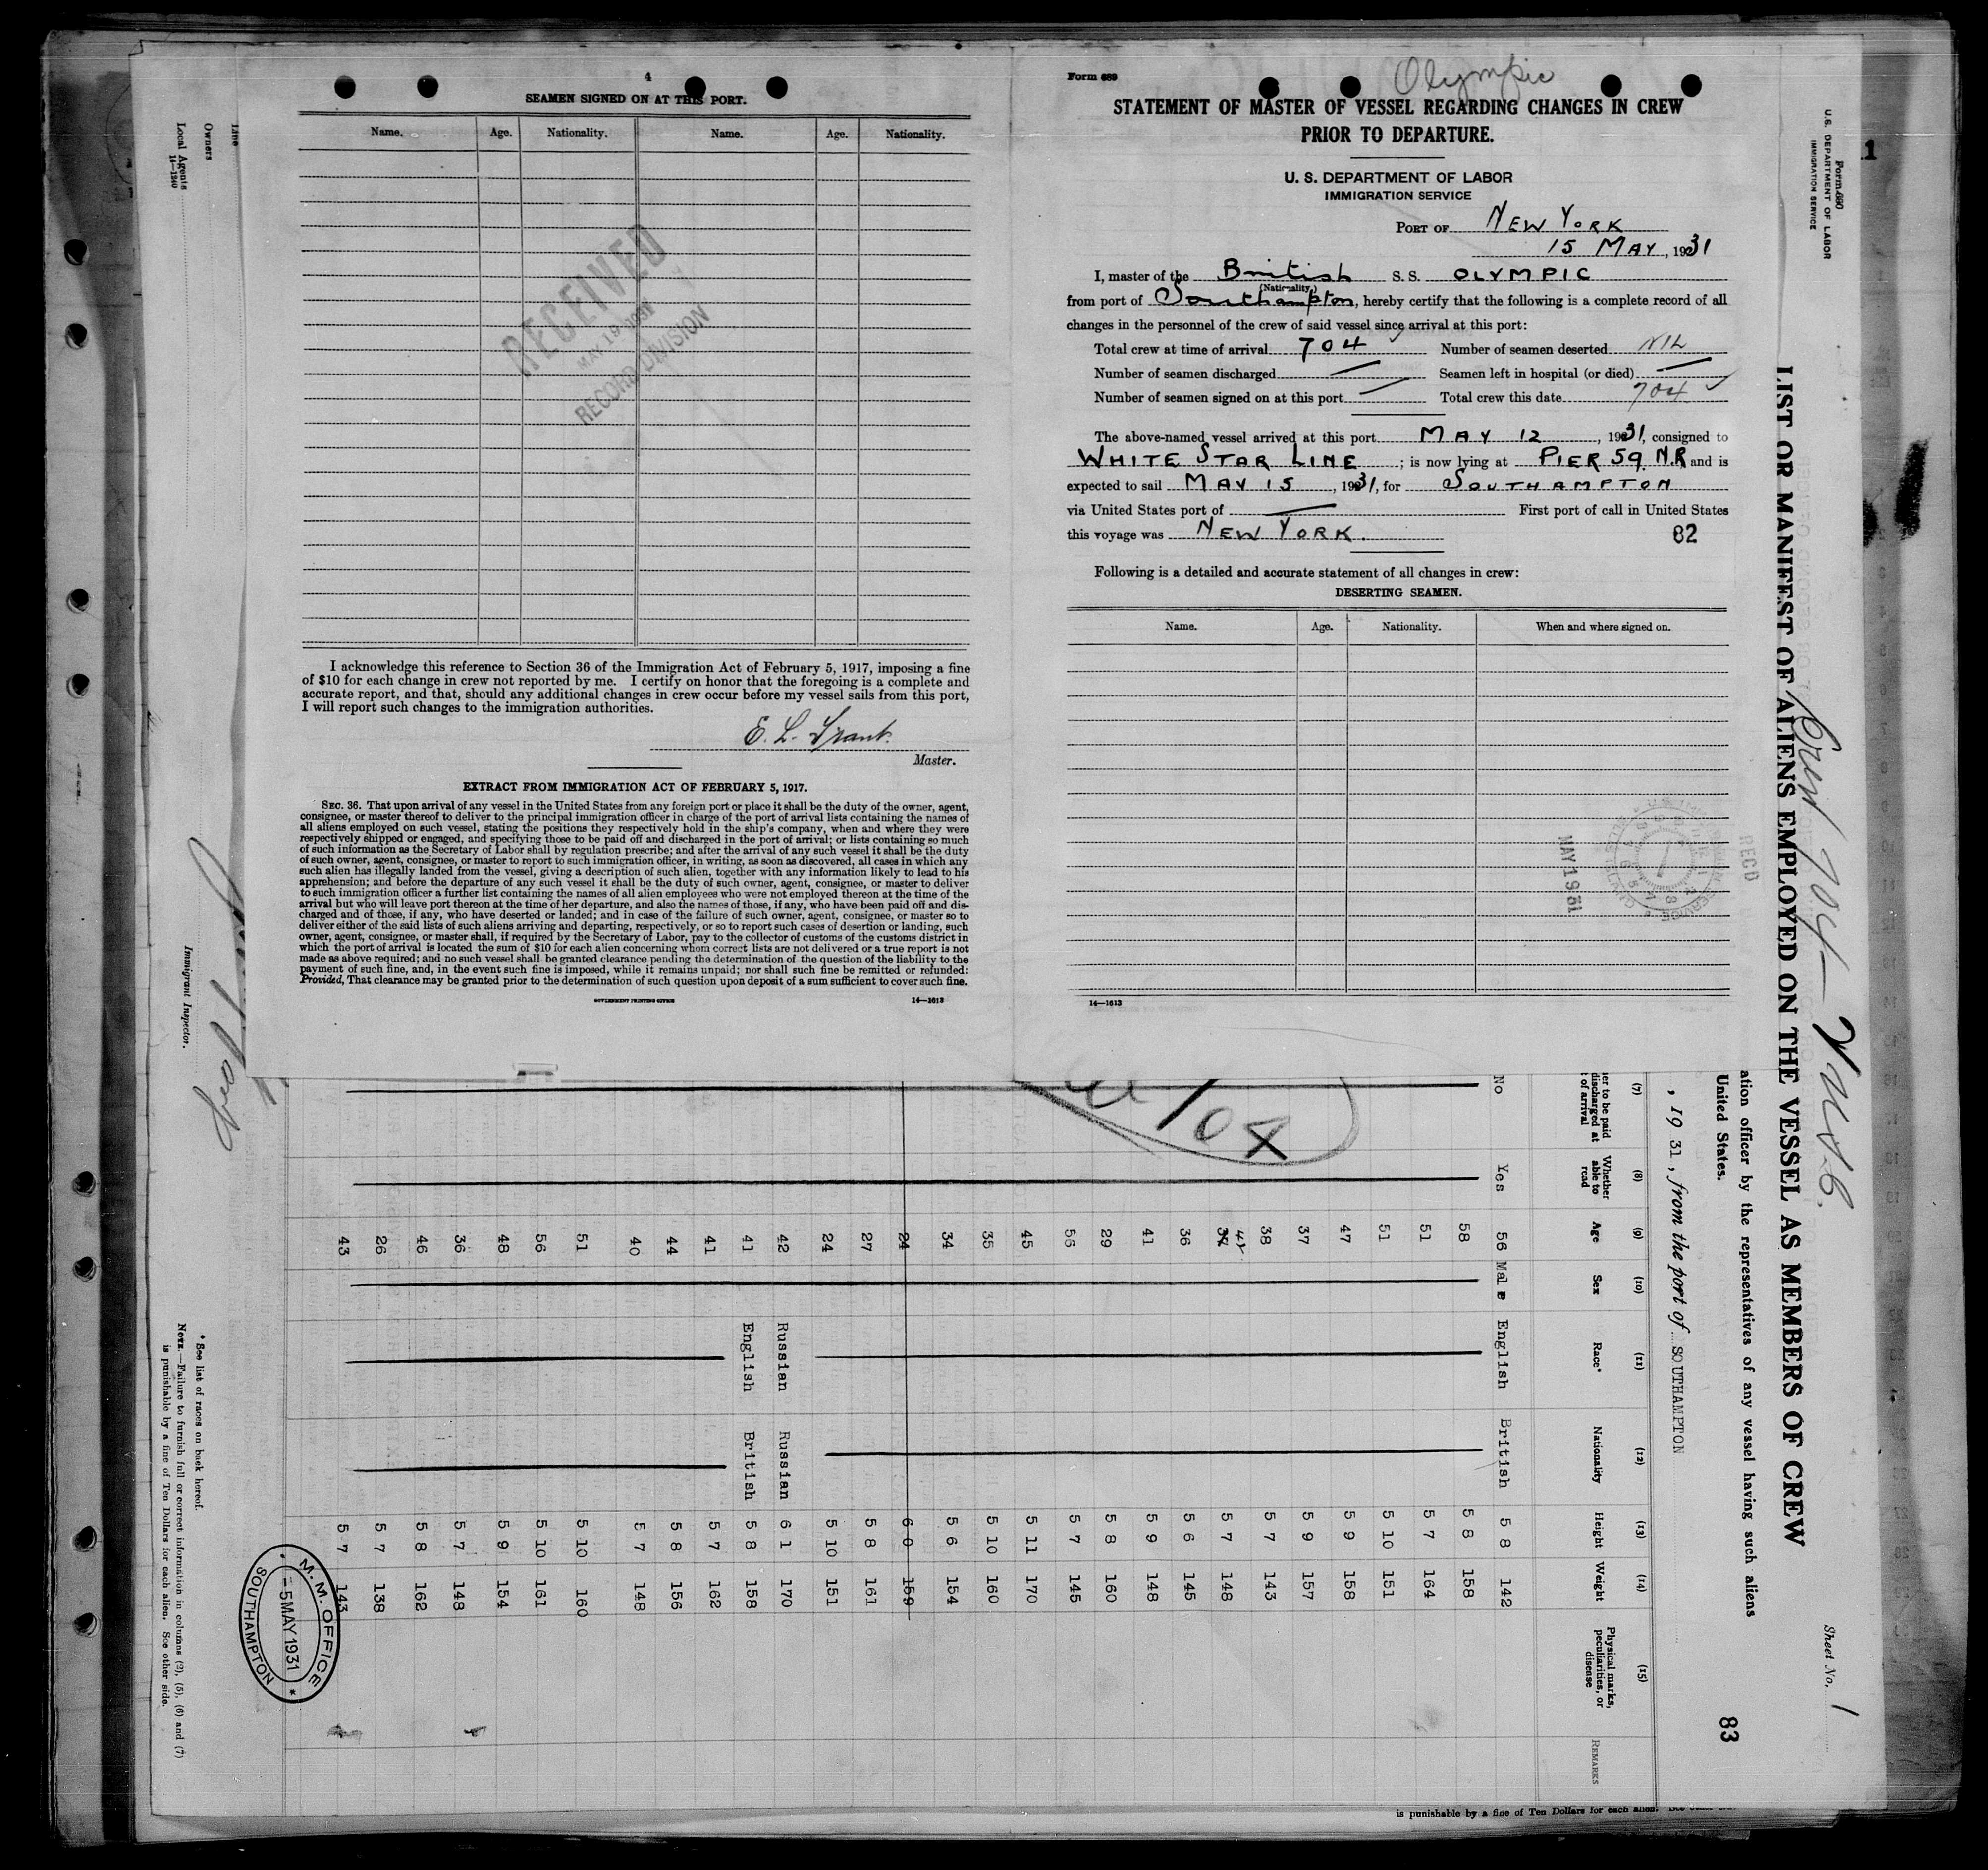 4
SEAMEN SIGNED ON AT THIS PORT.
Name. Age. Nationality. Name. Age. Nationality.
RECEIVED
MAY 19 1931
RECORD DIVISION
I acknowledge this reference to Section 36 of the Immigration Act of February 5, 1917, imposing a fine
of $10 for each change in crew not reported by me. I certify on honor that the foregoing is a complete and
accurate report, and that, should any additional changes in crew occur before my vessel sails from this port,
I will report such changes to the immigration authorities.
E. L. Trant.
Master.
EXTRACT FROM IMMIGRATION ACT OF FEBRUARY 5, 1917.
SEC. 36. That upon arrival of any vessel in the United States from any foreign port or place it shall be the duty of the owner, agent,
consignee, or master thereof to deliver to the principal immigration officer in charge of the port of arrival lists containing the names of
all aliens employed on such vessel, stating the positions they respectively hold in the ship's company, when and where they were
respectively shipped or engaged, and specifying those to be paid off and discharged in the port of arrival; or lists containing so much
of such information as the Secretary of Labor shall by regulation prescribe; and after the arrival of any such vessel it shall be the duty
of such owner, agent, consignee, or master to report to such immigration officer, in writing, as soon as discovered, all cases in which any
such alien has illegally landed from the vessel, giving a description of such alien, together with any information likely to lead to his
apprehension; and before the departure of any such vessel it shall be the duty of such owner, agent, consignee, or master to deliver
to such immigration officer a further list containing the names of all alien employees who were not employed thereon at the time of the
arrival but who will leave port thereon at the time of her departure, and also the names of those, if any, who have been paid off and dis-
charged and of those, if any, who have deserted or landed; and in case of the failure of such owner, agent, consignee, or master so to
deliver either of the said lists of such aliens arriving and departing, respectively, or so to report such cases of desertion or landing, such
owner, agent, consignee, or master shall, if required by the Secretary of Labor, pay to the collector of customs of the customs district in
which the port of arrival is located the sum of $10 for each alien concerning whom correct lists are not delivered or a true report is not
made as above required; and no such vessel shall be granted clearance pending the determination of the question of the liability to the
payment of such fine, and, in the event such fine is imposed, while it remains unpaid; nor shall such fine be remitted or refunded:
Provided, That clearance may be granted prior to the determination of such question upon deposit of a sum sufficient to cover such fine.
GOVERNMENT PRINTING OFFICE 14—1613
Form 689
Olympic
STATEMENT OF MASTER OF VESSEL REGARDING CHANGES IN CREW
PRIOR TO DEPARTURE.
U. S. DEPARTMENT OF LABOR
IMMIGRATION SERVICE
PORT OF NEW YORK
15 MAY, 1931
I, master of the British S. S. OLYMPIC
(Nationality.)
from port of Southampton, hereby certify that the following is a complete record of all
changes in the personnel of the crew of said vessel since arrival at this port:
Total crew at time of arrival 704 Number of seamen deserted NIL
Number of seamen discharged Seamen left in hospital (or died)
Number of seamen signed on at this port Total crew this date 704
The above-named vessel arrived at this port MAY 12, 1931, consigned to
WHITE STAR LINE; is now lying at PIER 59 N.R and is
expected to sail MAY 15, 1931, for SOUTHAMPTON
via United States port of First port of call in United States
this voyage was NEW YORK.
82
Following is a detailed and accurate statement of all changes in crew:
DESERTING SEAMEN.
Name. Age. Nationality. When and where signed on.
RECD
MAY 19 31
14—1613
Form 690
U.S. DEPARTMENT OF LABOR
IMMIGRATION SERVICE
Sheet No. 1
LIST OR MANIFEST OF ALIENS EMPLOYED ON THE VESSEL AS MEMBERS OF CREW
83
ation officer by the representatives of any vessel having such aliens
United States.
, 19 31, from the port of SOUTHAMPTON
(7) (8) (9) (10) (11) (12) (13) (14) (15)
er to be paid
discharged at
of arrival
Whether
able to
read
Age
Sex
Race*
Nationality
Height
Weight
Physical marks,
peculiarities, or
disease
REMARKS
No Yes 56 Male English British 5 8 142
58 5 8 158
51 5 7 164
51 5 10 151
47 5 9 158
37 5 9 157
38 5 7 143
42 5 7 148
36 5 6 145
41 5 9 148
29 5 8 160
56 5 7 145
45 5 11 170
35 5 10 160
34 5 6 154
24 6 0 159
27 5 8 161
24 5 10 151
42 Russian Russian 6 1 170
41 English British 5 8 158
41 5 7 162
44 5 8 156
40 5 7 148
51 5 10 160
56 5 10 161
48 5 9 154
36 5 7 148
46 5 8 162
26 5 7 138
43 5 7 143
M.M. OFFICE
-5 MAY 1931
SOUTHAMPTON
* See list of races on back hereof.
NOTE.—Failure to furnish full or correct information in columns (2), (5), (6) and (7)
is punishable by a fine of Ten Dollars for each alien. See other side.
Line
Owners
Local Agents
14—1240
Immigrant Inspector.
is punishable by a fine of Ten Dollars for each alien.